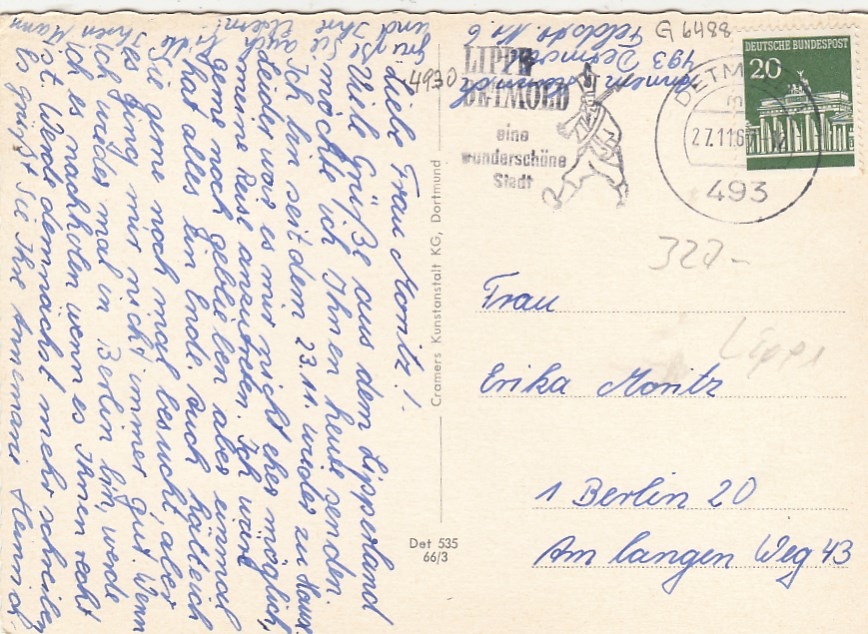 Liebe Frau Moritz!
Viele Grüße aus dem Lipperland
möchte ich Ihnen heute senden.
Ich bin seit dem 23.11. wieder zu Haus.
Leider war es mir nicht eher möglich,
meine Reise anzutreten. Ich wäre
gerne noch geblieben aber einmal
hat alles ein Ende. Auch hätte ich
Sie gerne noch mal besucht, aber
es ging mir nicht immer gut. Wenn
ich wieder mal in Berlin bin, werde
ich es nachholen wenn es Ihnen recht
ist. Werde demnächst mehr schreiben
Es grüßt Sie Ihre Annemarie
Ihren Mann
und Ihre
grüße Sie
auch
Eltern!
493 Detmold
Feldstr. Nr. 6
G 6488
4930
LIPPE
DETMOLD
eine
wunderschöne
Stadt
DETMOLD
27.11.6
493
DEUTSCHE BUNDESPOST
20
327-
Lippe
Cramers Kunstanstalt KG, Dortmund
Det 535
66/3
Frau
Erika Moritz
1 Berlin 20
Am langen Weg 43